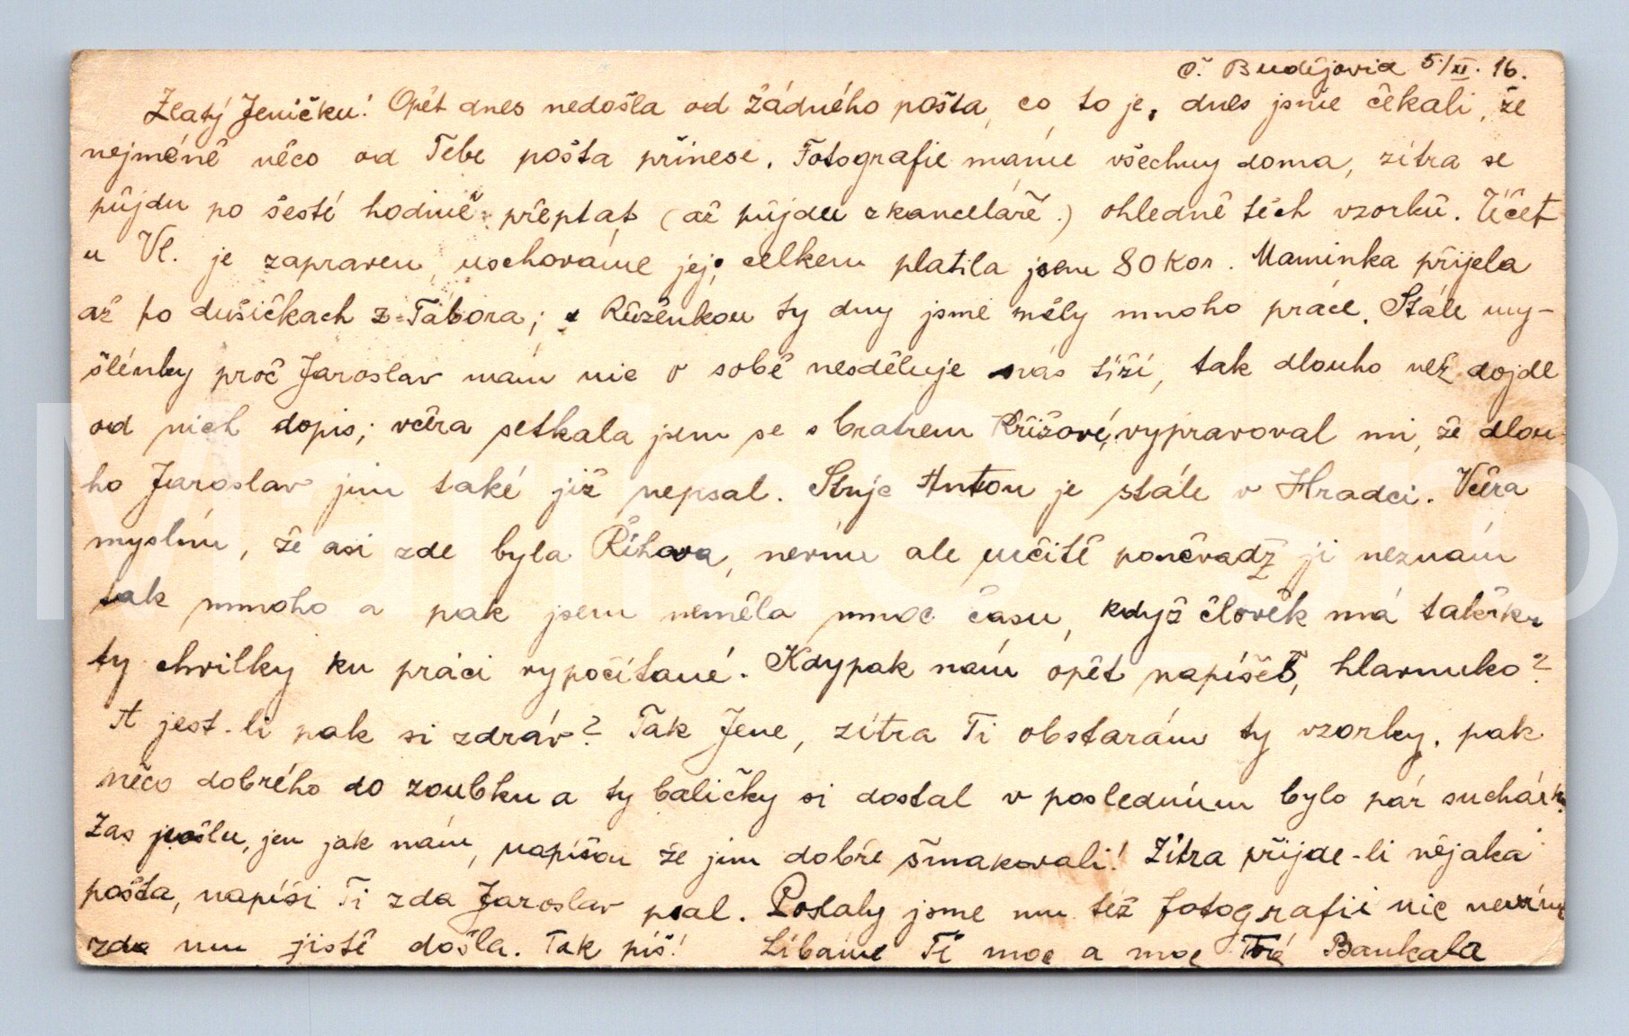 Č. Budějovice 5/XI. 16.
Zlatý Jeníčku! Opět dnes nedošla od žádného pošta, co to je, dnes jsme čekali, že
nejméně něco od Tebe pošta přinese. Fotografie máme všechny doma, zítra se
půjdu po šesté hodině přeptat (až půjdu z kanceláře.) ohledně těch vzorků. Účet
u Vl. je zapraven, uschováme jej; celkem platila jsem 80 Kor. Maminka přijela
až po dušičkách z Tábora; s Růženkou ty dny jsme měly mnoho práce. Stále my-
šlénky proč Jaroslav nám nic o sobě nesděluje nás tíží, tak dlouho než dojde
od nich dopis; včera setkala jsem se s bratrem Křížové, vypravoval mi, že dlou-
ho Jaroslav jim také již nepsal. Strýc Anton je stále v Hradci. Včera
myslím, že asi zde byla Říhova, nevím ale určitě poněvadž ji neznám
tak mnoho a pak jsem neměla mnoc času, když člověk má takřka
ty chvilky ku práci vypočítané. Kdypak nám opět napíšeš, hlavinko?
A jest-li pak si zdráv? Tak Jene, zítra Ti obstarám ty vzorky, pak
něco dobrého do zoubku a ty baličky si dostal v posledním bylo pár suchárk.
Zas pošlu, jen jak nám, napíšou že jim dobře šmakovali! Zítra přijde-li nějaká
pošta, napíši Ti zda Jaroslav psal. Poslaly jsme mu též fotografii nic nevíme
zda mu jistě došla. Tak piš! Líbáme Tě moc a moc Tvá